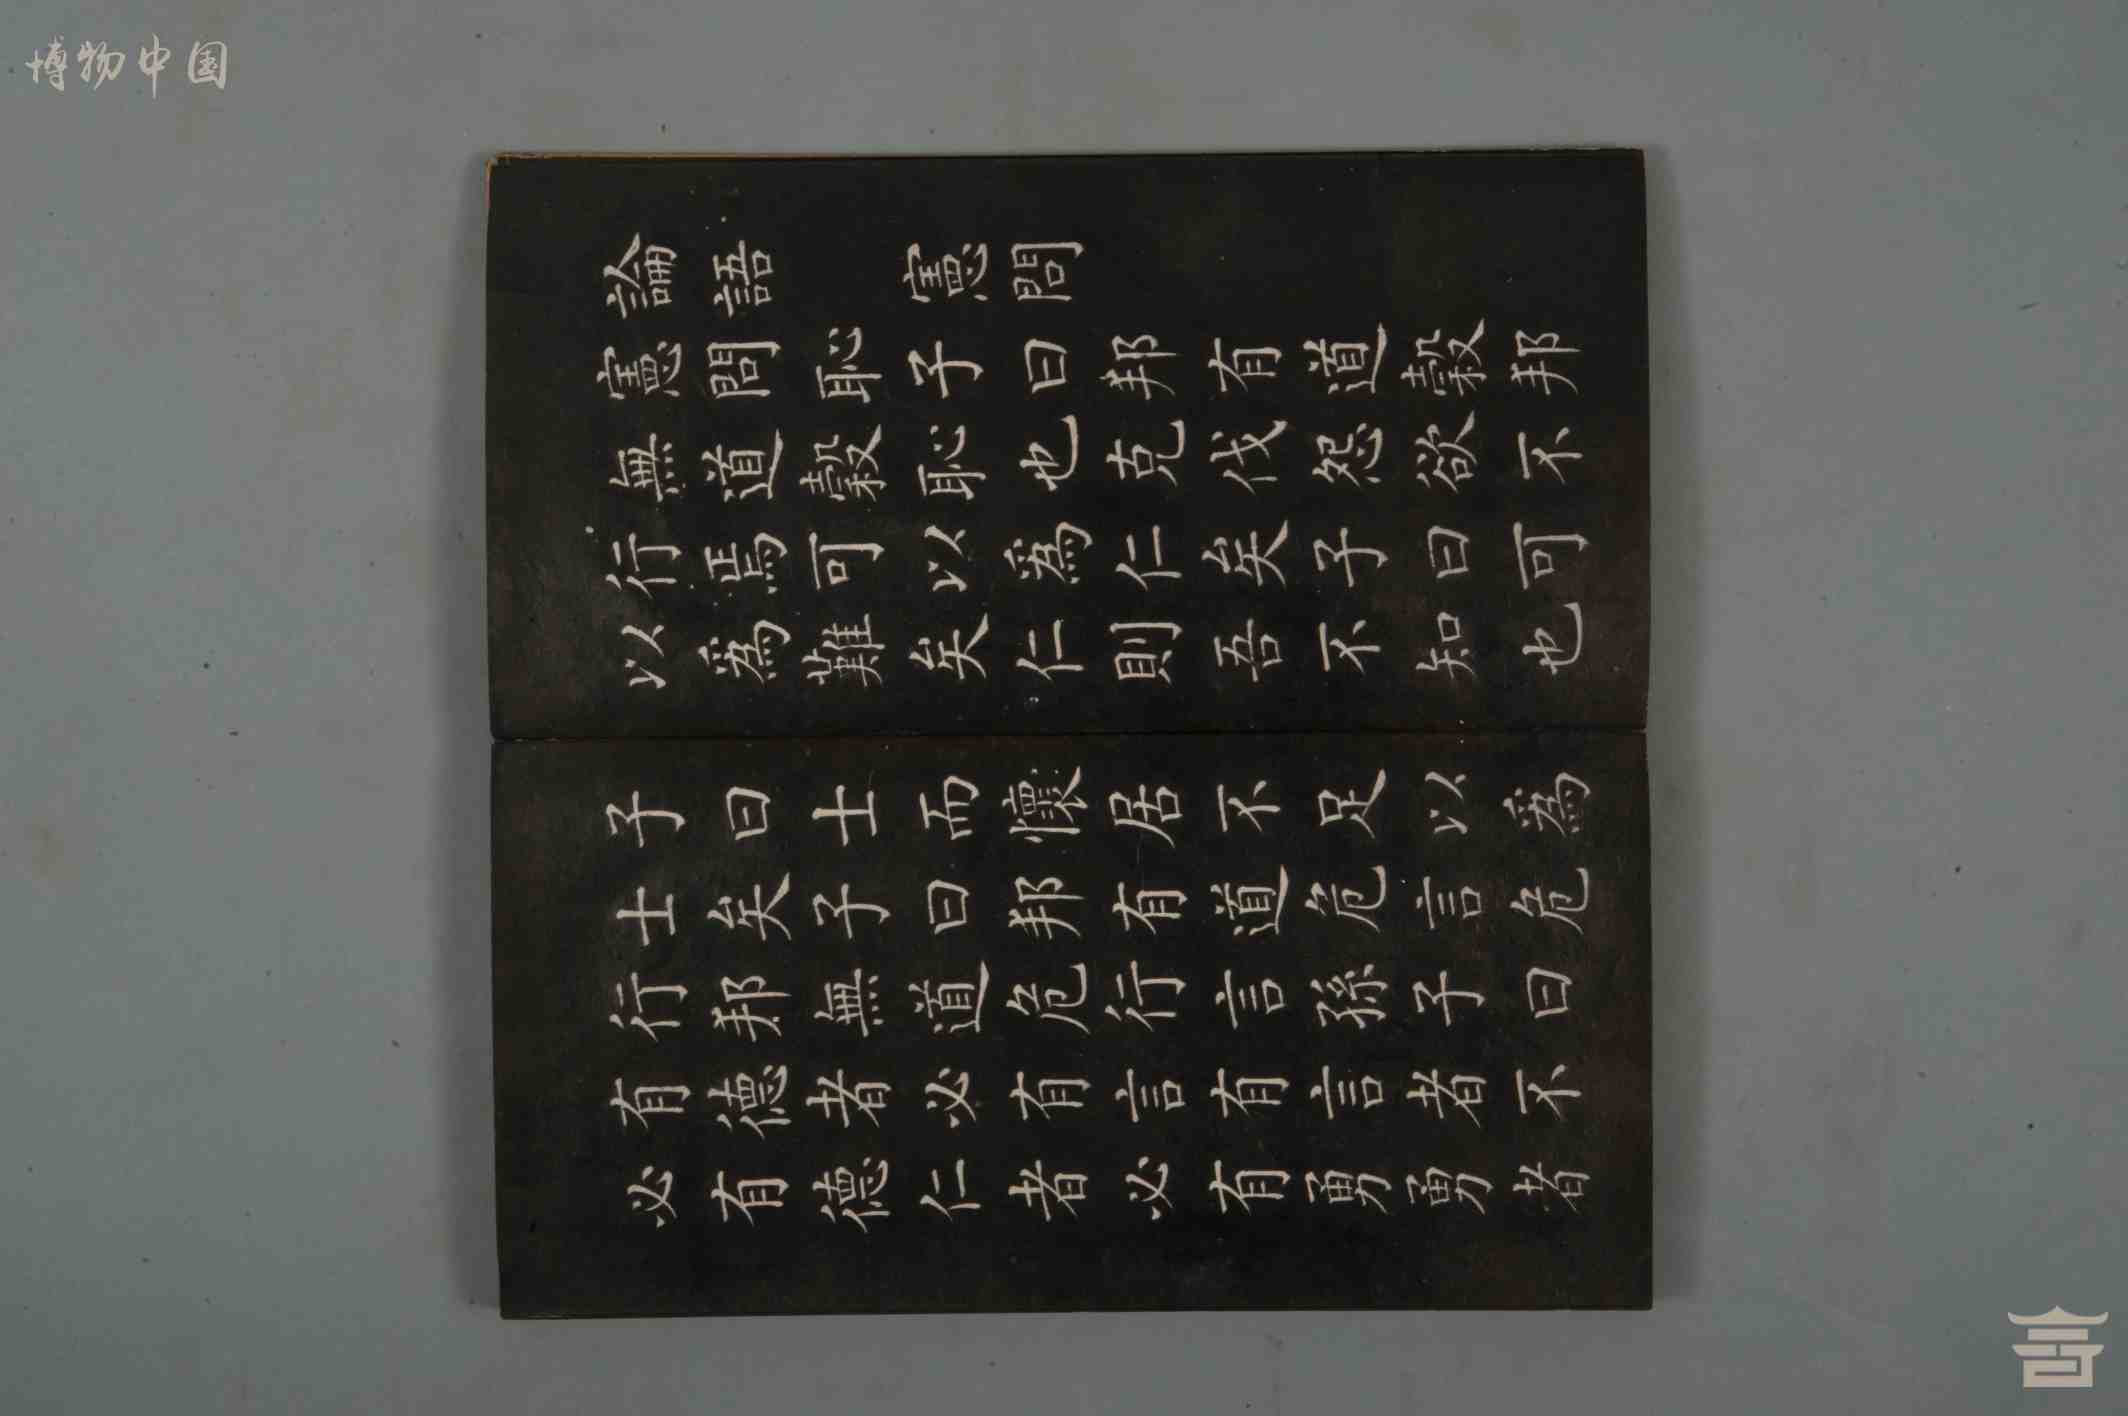 博物中国
論語　憲問
憲問恥子曰邦有道穀邦
無道穀恥也克伐怨欲不
行焉可以爲仁矣子曰可
以爲難矣仁則吾不知也
子曰士而懷居不足以爲
士矣子曰邦有道危言危
行邦無道危行言孫子曰
有德者必有言有言者不
必有德仁者必有勇勇者